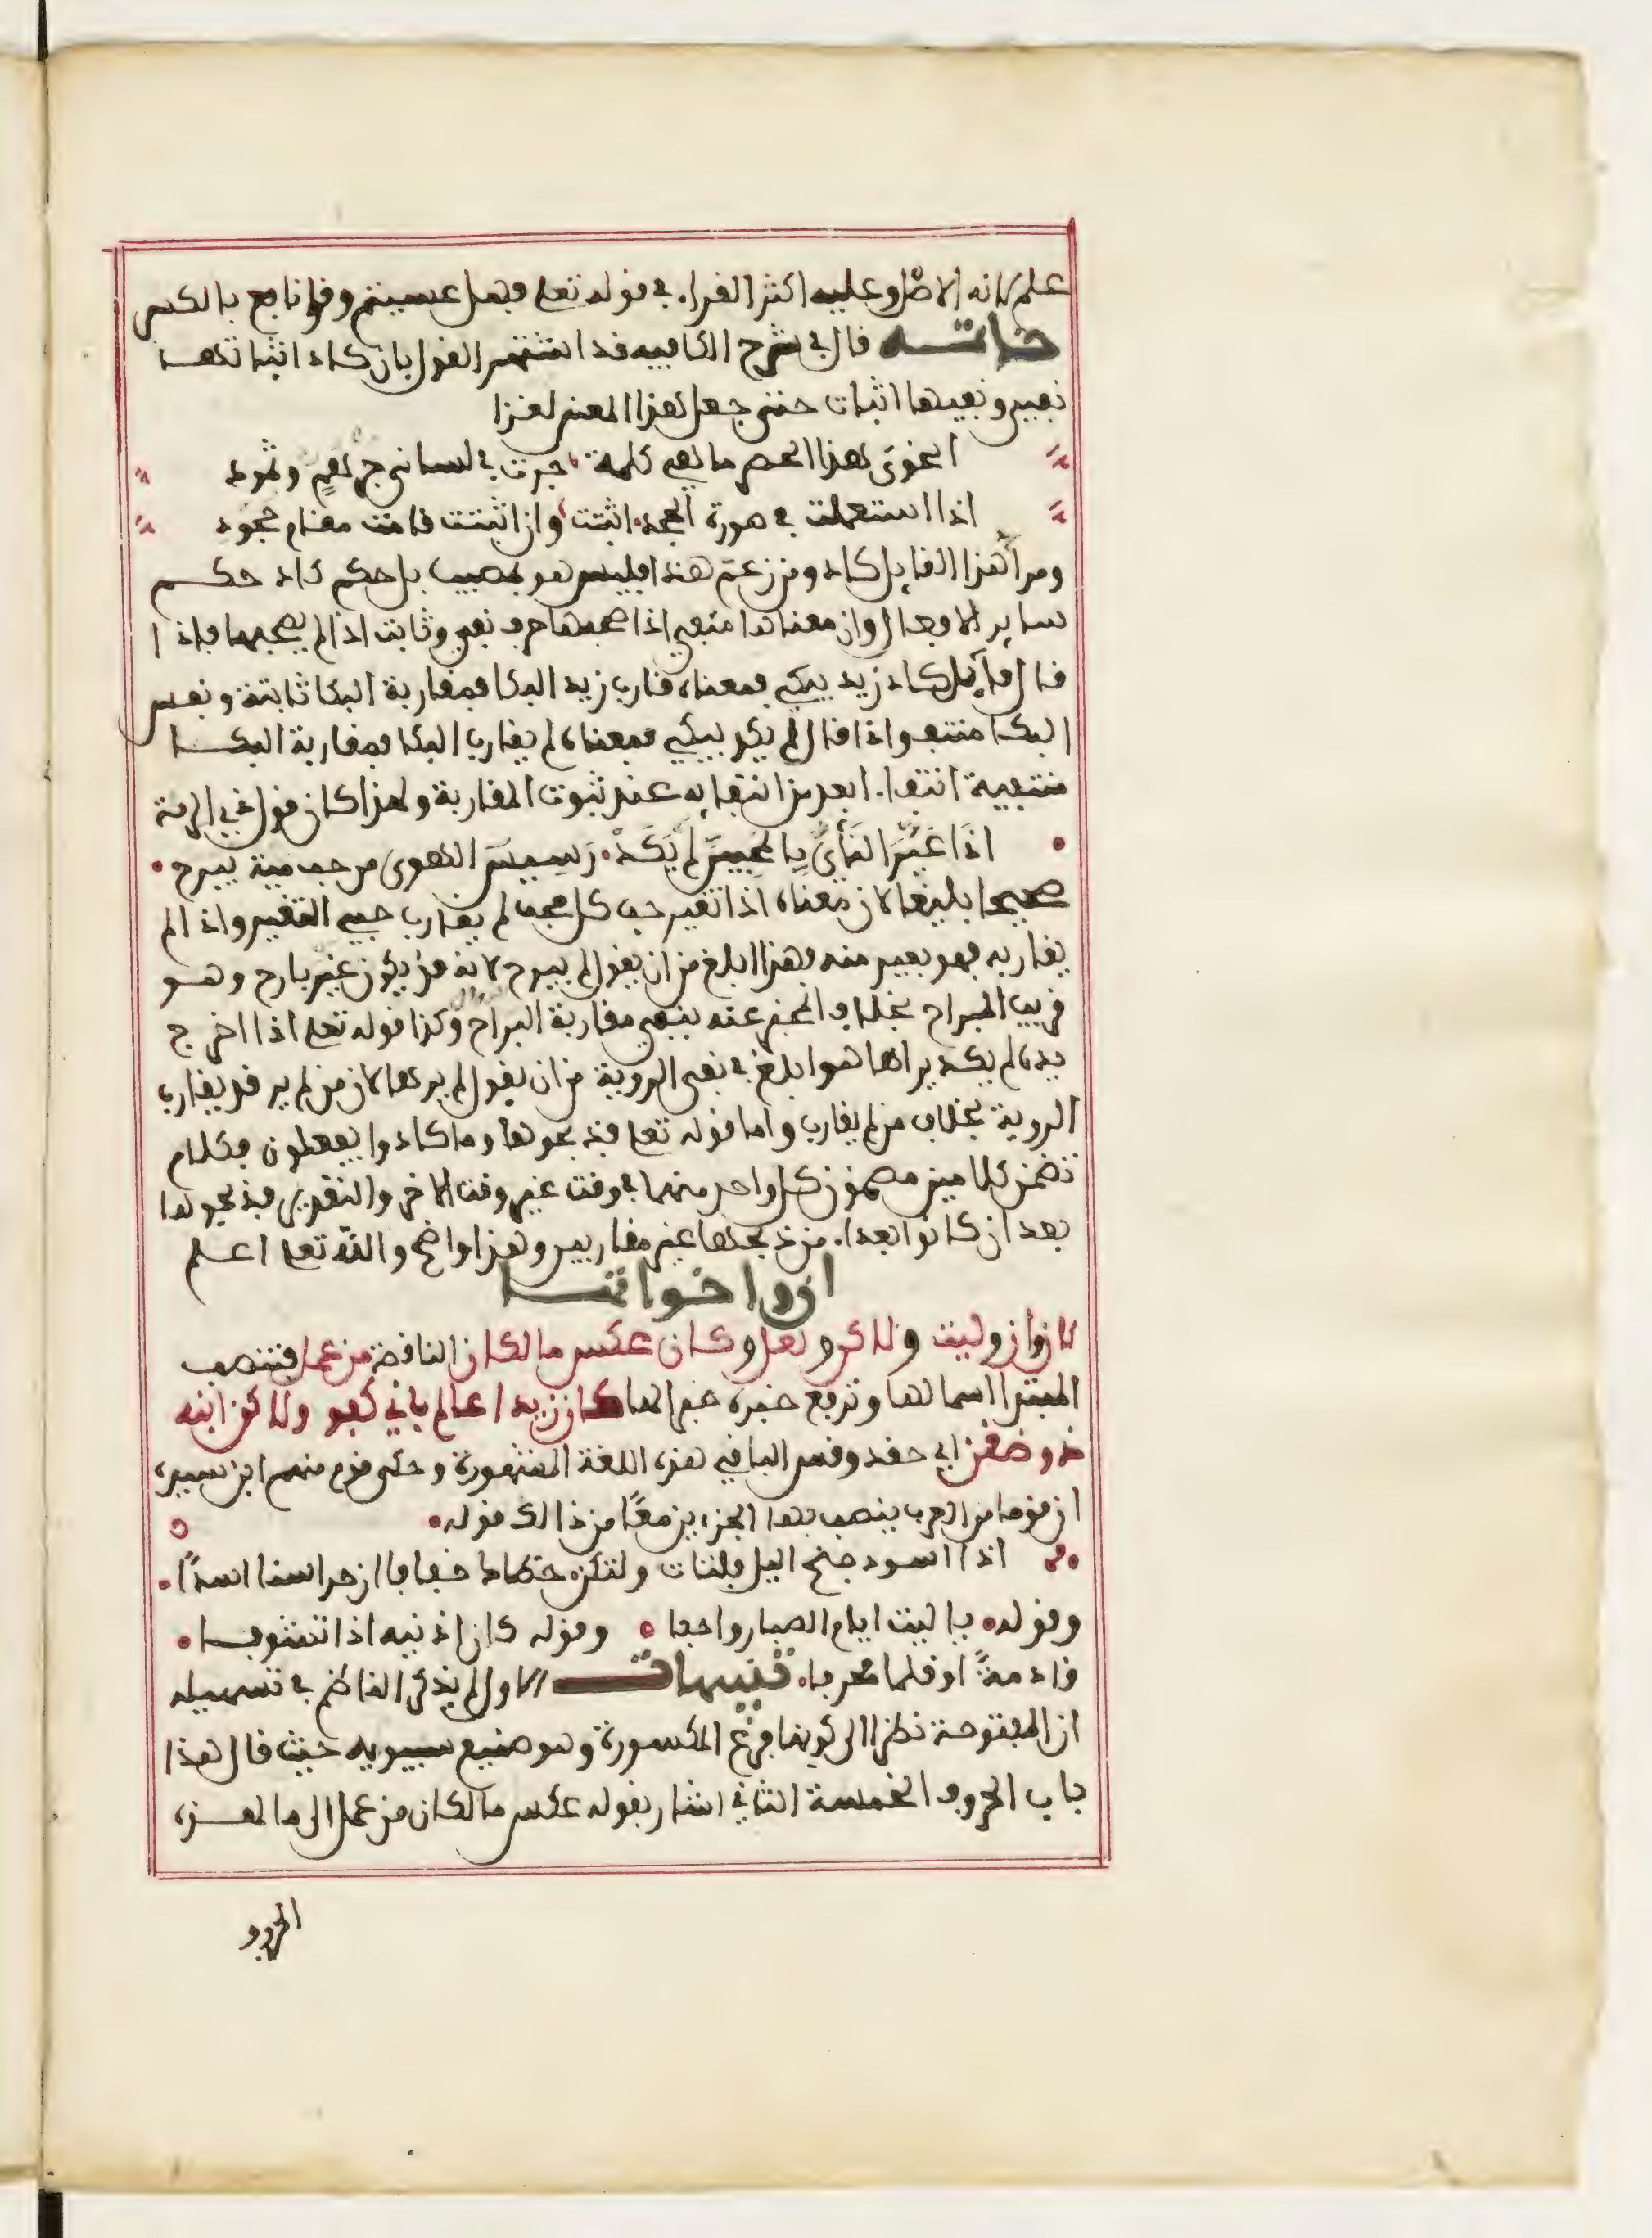 علم لانه الاصل وعليه اكثر القراء في قوله تعلى فهل عسيتم وقرا نافع بالكسر
خاتمة قال في شرح الكافية قد اشتهر القول بان كاد اثباتها
نفي ونفيها اثبات حتى جعل هذا المعنى لغزا
انحوي هذا العصر ما هي كلمة جرت في لساني جرهم وثمود
اذا استعملت في صورة الجحد اثبتت وان اثبتت قامت مقام جحود
ومراد هذا القايل كاد ومن زعم هذا فليس هو بمصيب بل حكم كاد حكم
ساير الافعال وان معناها منفي اذا صحبها حرف نفي وثابت اذا لم يصحبها فاذا
قال قايل كاد زيد يبكي فمعناه قارب زيد البكا فمقاربة البكا ثابتة ونفس
البكا منتف واذا قال لم يكد يبكي فمعناه لم يقارب البكا فمقاربة البكا
منتفية انتفاء ابعد من انتفايه عند ثبوت المقاربة ولهذا كان قول ذي الرمة
اذا غير النأي المحبين لم يكد رسيس الهوى من حب مية يبرح
صحيحا بليغا لان معناه اذا تغير حب كل محب لم يقارب حبي التغير واذا لم
يقاربه فهو بعيد منه وهذا ابلغ من ان يقول لم يبرح لانه قد يكون غير بارح وهو
قريب البراح بخلاف المخبر عنه بنفي مقاربة البراح وكذا قوله تعلى اذا اخرج
يده لم يكد يراها هو ابلغ في نفي الروية من ان يقول لم يرها لان من لم ير قد يقارب
الروية بخلاف من لم يقارب واما قوله تعلى فذبحوها وما كادوا يفعلون فكلام
تضمن كلامين مضمون كل واحد منهما في وقت غير وقت الاخر والتقدير فذبحوها
بعد ان كانوا بعداء من ذبحها غير مقاربين وهذا واضح والله تعلى اعلم
ان واخواتها
لان وان وليت ولاكن ولعل وكان عكس ما لكان الناقصة من عمل فتنصب
المبتدا اسما لها وترفع خبره خبرا لها كان زيدا عالم باني كفو ولاكن ابنه
ذو ضغن اي حقد وقس الباقي هذه اللغة المشهورة وحكى قوم منهم ابن سيده
ان قوما من العرب ينصب بها الجزءين معا من ذالك قوله
اذا اسود جنح اليل فلتات ولتكن خطاك خفافا ان حراسنا اسدا
وقوله يا ليت ايام الصبا رواجعا وقوله كان اذنيه اذا تشوفا
قادمة او قلما محرفا تنبيهات الاول لم يذكر الناظم في تسهيله
ان المفتوحة نظرا الى كونها فرع المكسورة وهو صنيع سيبويه حيث قال هذا
باب الحروف الخمسة الثاني اشار بقوله عكس ما لكان من عمل الى ما لهذه
الحروف